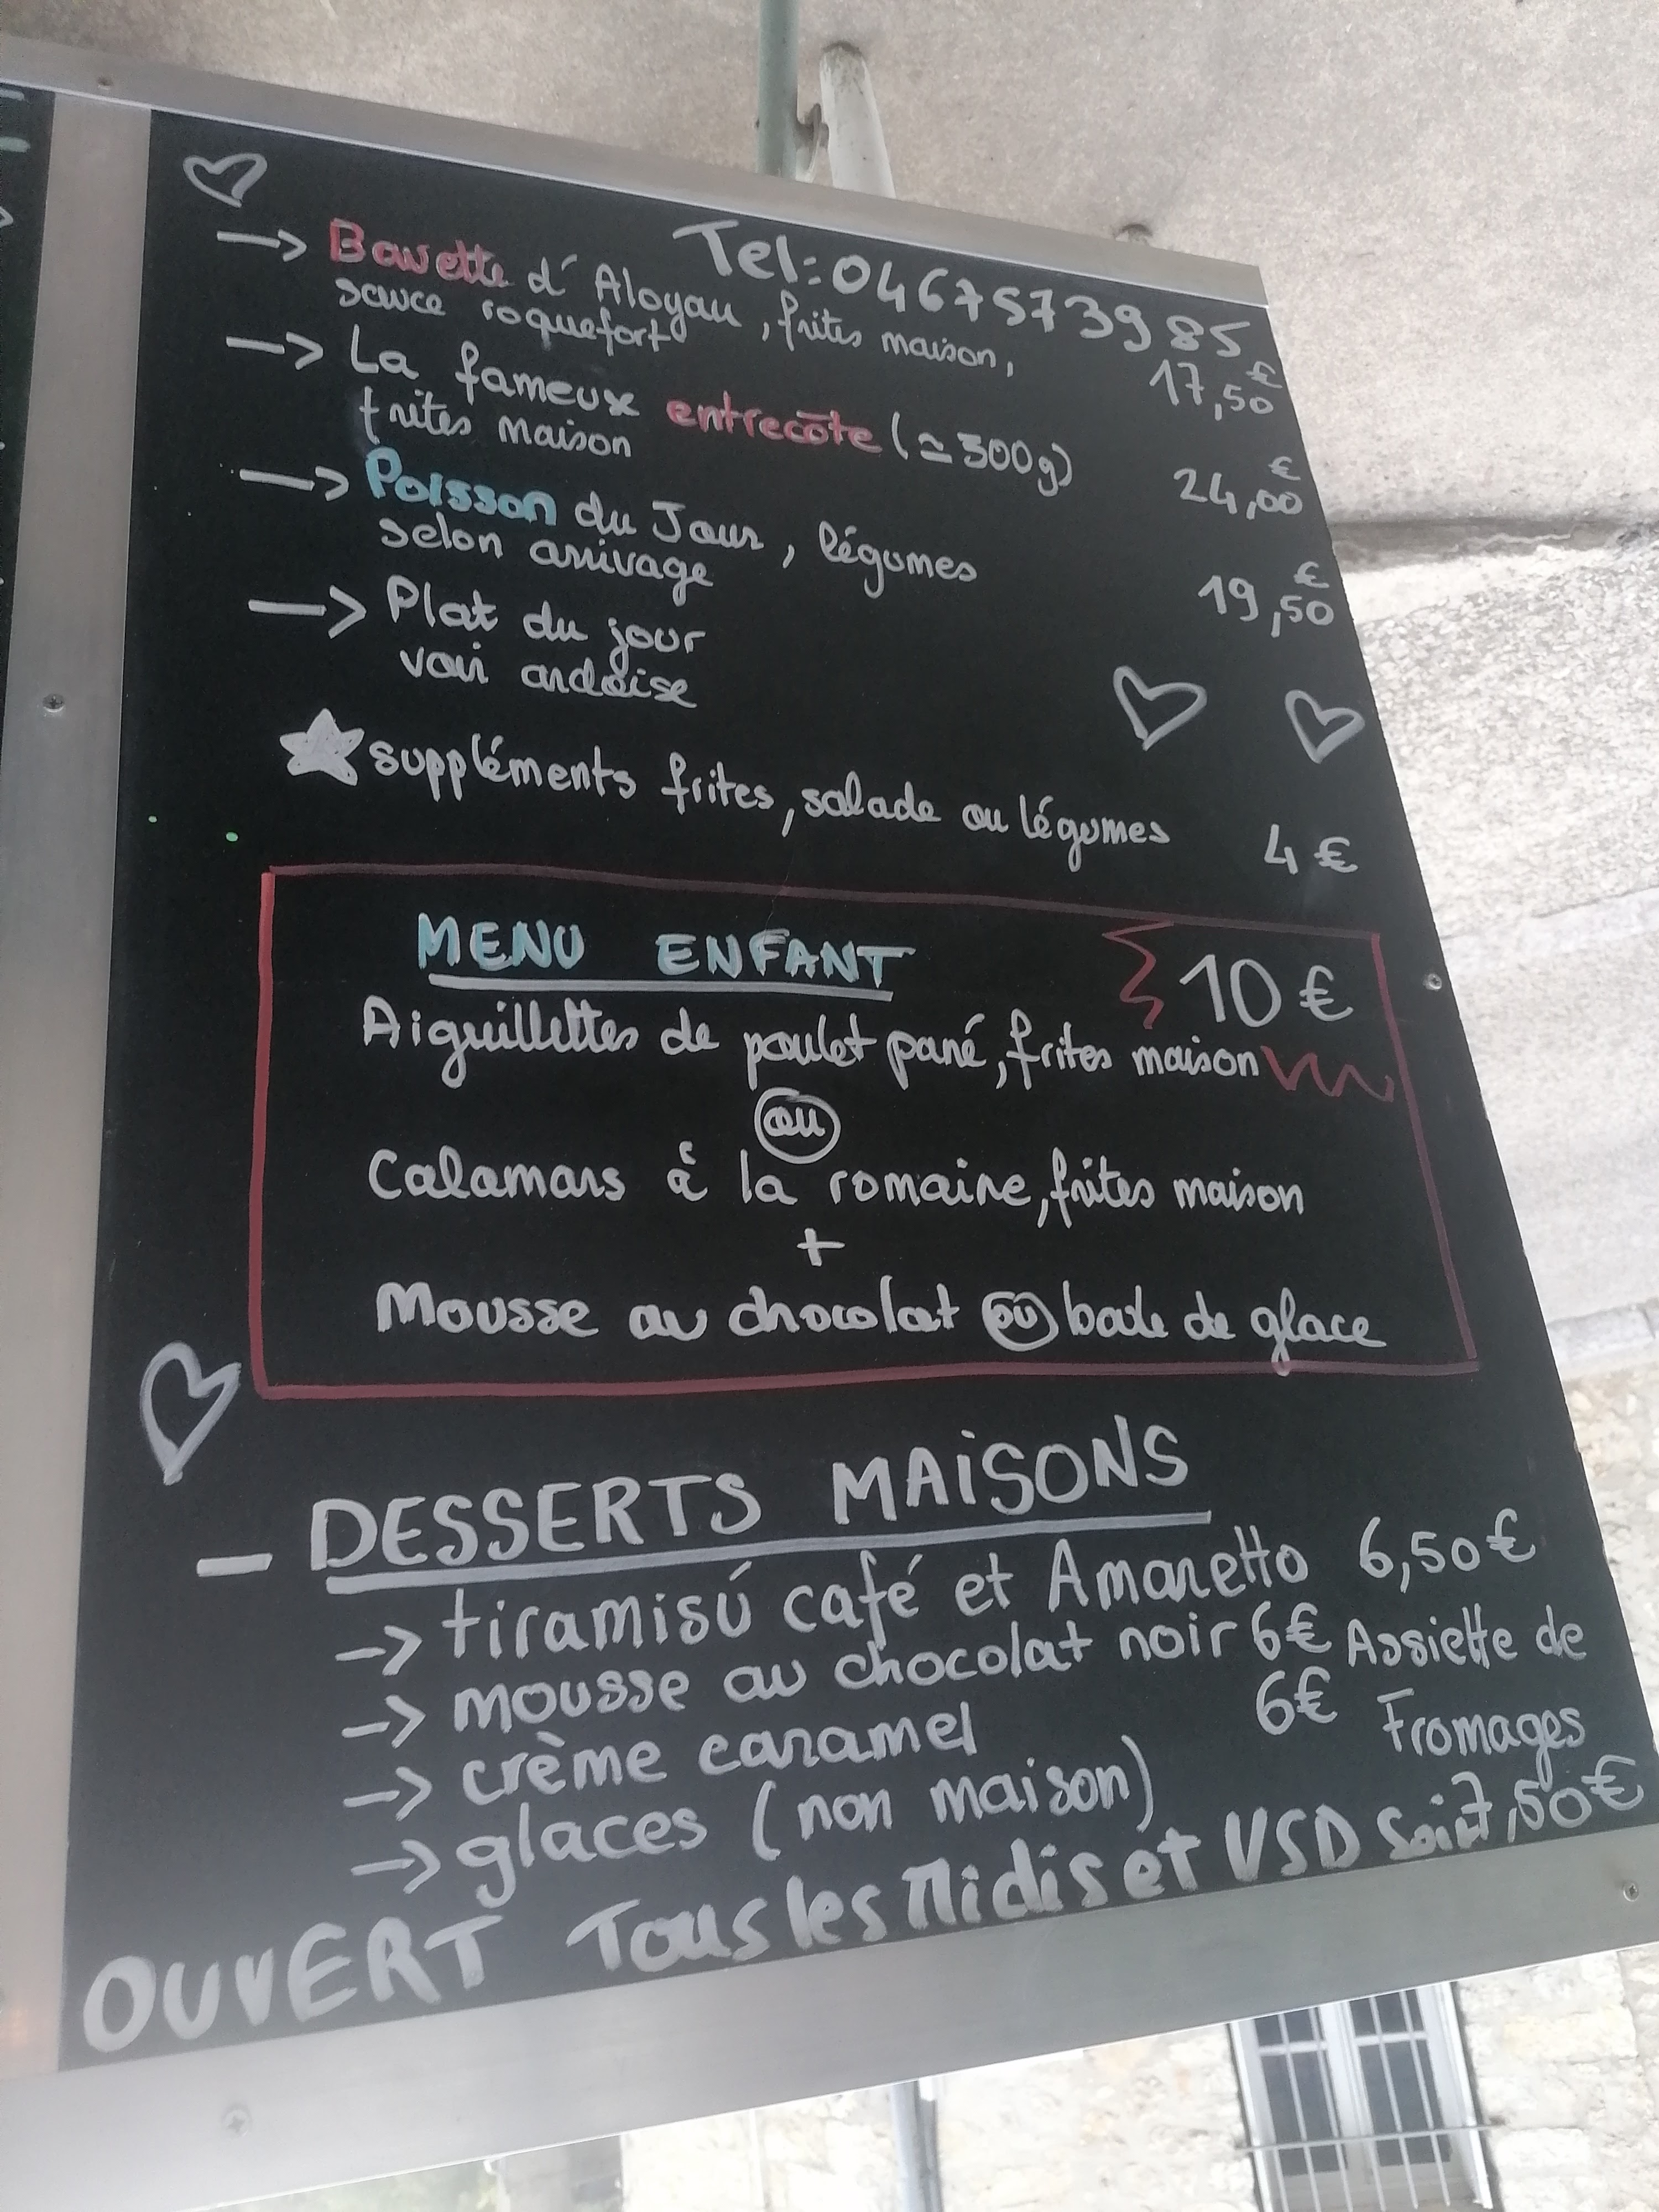 Tel: 0467573985
→ Bavette d'Aloyau, frites maison,
sauce roquefort 17,50 €
→ La fameuse entrecôte (≃300g)
frites maison 24,00 €
→ Poisson du Jour, légumes
selon arrivage 19,50 €
→ Plat du jour
voir ardoise
suppléments frites, salade ou légumes 4 €
MENU ENFANT 10 €
Aiguillettes de poulet pané, frites maison
ou
Calamars à la romaine, frites maison
+
Mousse au chocolat ou boule de glace
- DESSERTS MAISONS
→ tiramisú café et Amaretto 6,50 €
→ mousse au chocolat noir 6€
→ crème caramel 6€
→ glaces (non maison)
Assiette de
Fromages
7,50€
OUVERT Tous les Midis et VSD Soir